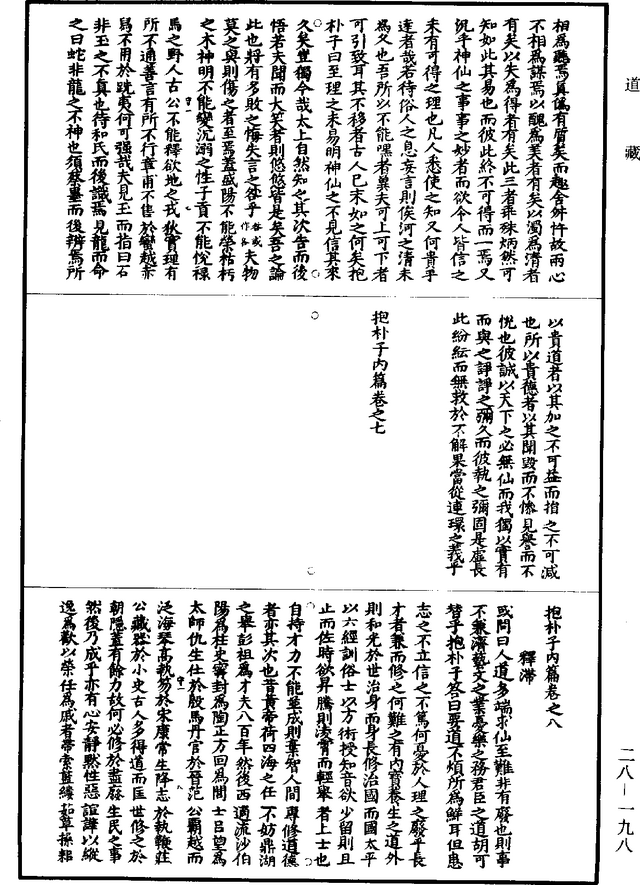 道藏
相為聽焉真偽有質矣而趣舍舛忤故兩心
不相為謀焉以醜為美者有矣以濁為清者
有矣以失為得者有矣此三者乖殊炳然可
知如此其易也而彼此終不可得而一焉又
況乎神仙之事事之妙者而欲令人皆信之
未有可得之理也凡人悉使之知又何貴乎
達者哉若待俗人之息妄言則俟河之清未
為久也吾所以不能嘿者冀夫可上可下者
可引致耳其不移者古人已末如之何矣抱
朴子曰至理之未易明神仙之不見信其來
久矣豈獨今哉太上自然知之其次告而後
悟若夫聞而大笑者則悠悠皆是矣吾之論
此也將有多敗之悔失言之咎乎夫物
莫之與則傷之者至焉蓋盛陽不能榮枯朽
之木神明不能變沉溺之性子貢不能悅祿
馬之野人古公不能釋欲地之戎狄實理有
所不通善言有所不行章甫不售於蠻越赤
舄不用於跣夷何可强哉夫見玉而指曰石
非玉之不真也待和氏而後識焉見龍而命
之曰蛇非龍之不神也須蔡墨而後辨焉所
以貴道者以其加之不可益而損之不可減
也所以貴德者以其聞毀而不慘見譽而不
悅也彼誠以天下之必無仙而我獨以實有
而與之諍諍之彌久而彼執之彌固是虛長
此紛紜而無救於不解果當從連環之義乎
抱朴子內篇卷之七
抱朴子內篇卷之八
釋滯
或問曰人道多端求仙至難非有廢也則事
不兼濟藝文之業憂樂之務君臣之道胡可
替乎抱朴子答曰要道不煩所為鮮耳但患
志之不立信之不篤何憂於人理之廢乎長
才者兼而修之何難之有內寶養生之道外
則和光於世治身而身長修治國而國太平
以六經訓俗士以方術授知音欲少留則且
止而佐時欲昇騰則淩霄而輕舉者上士也
自持才力不能並成則棄智人間專修道德
者亦其次也昔黃帝荷四海之任不妨鼎湖
之舉彭祖為才夫八百年然後西適流沙伯
陽為柱史甯封為陶正方回為閭士呂望為
太師仇生仕於殷馬丹官於晉范公霸越而
泛海琴高執笏於宋康常生降志於執鞭莊
公藏器於小史古人多得道而匡世修之於
朝隱蓋有餘力故何必修於盡廢生民之事
然後乃成乎亦有心安靜默性惡諠譁以縱
逸為歡以榮任為戚者帶索藍縷茹草操耜
二八—一九八